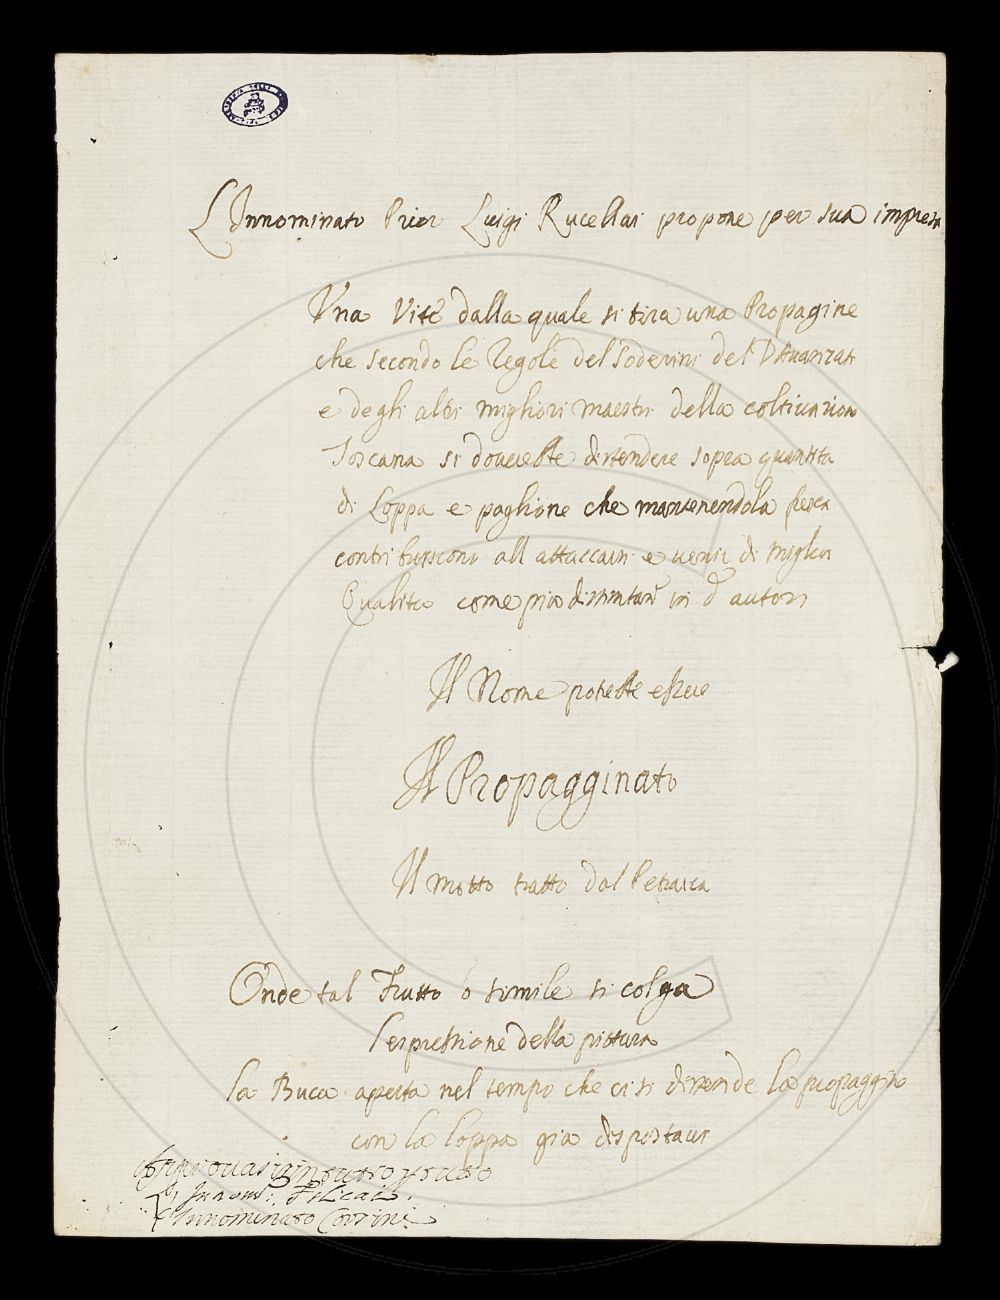 L'Innominato Prior Luigi Rucellai propone per sua impresa
Una Vite dalla quale si tira una Propagine
che secondo le Regole del Soderini del Davanzati
e degli altri migliori maestri della coltivazion
Toscana si dovrebbe distendere sopra quantita
di Loppa e paglione che mantenendola fresca
contribuiscono all attaccarsi e venir di miglior
Qualita come piu distintam in d autori
Il Nome potrebbe essere
Il Propagginato
Il motto tratto dal Petrarca
Onde tal Frutto o simile si colga
l'espressione della pittura
la Buca aperta nel tempo che ci si distende la propaggine
con la loppa gia
L'Innom: Filicaia.
L'Innominato Corsini